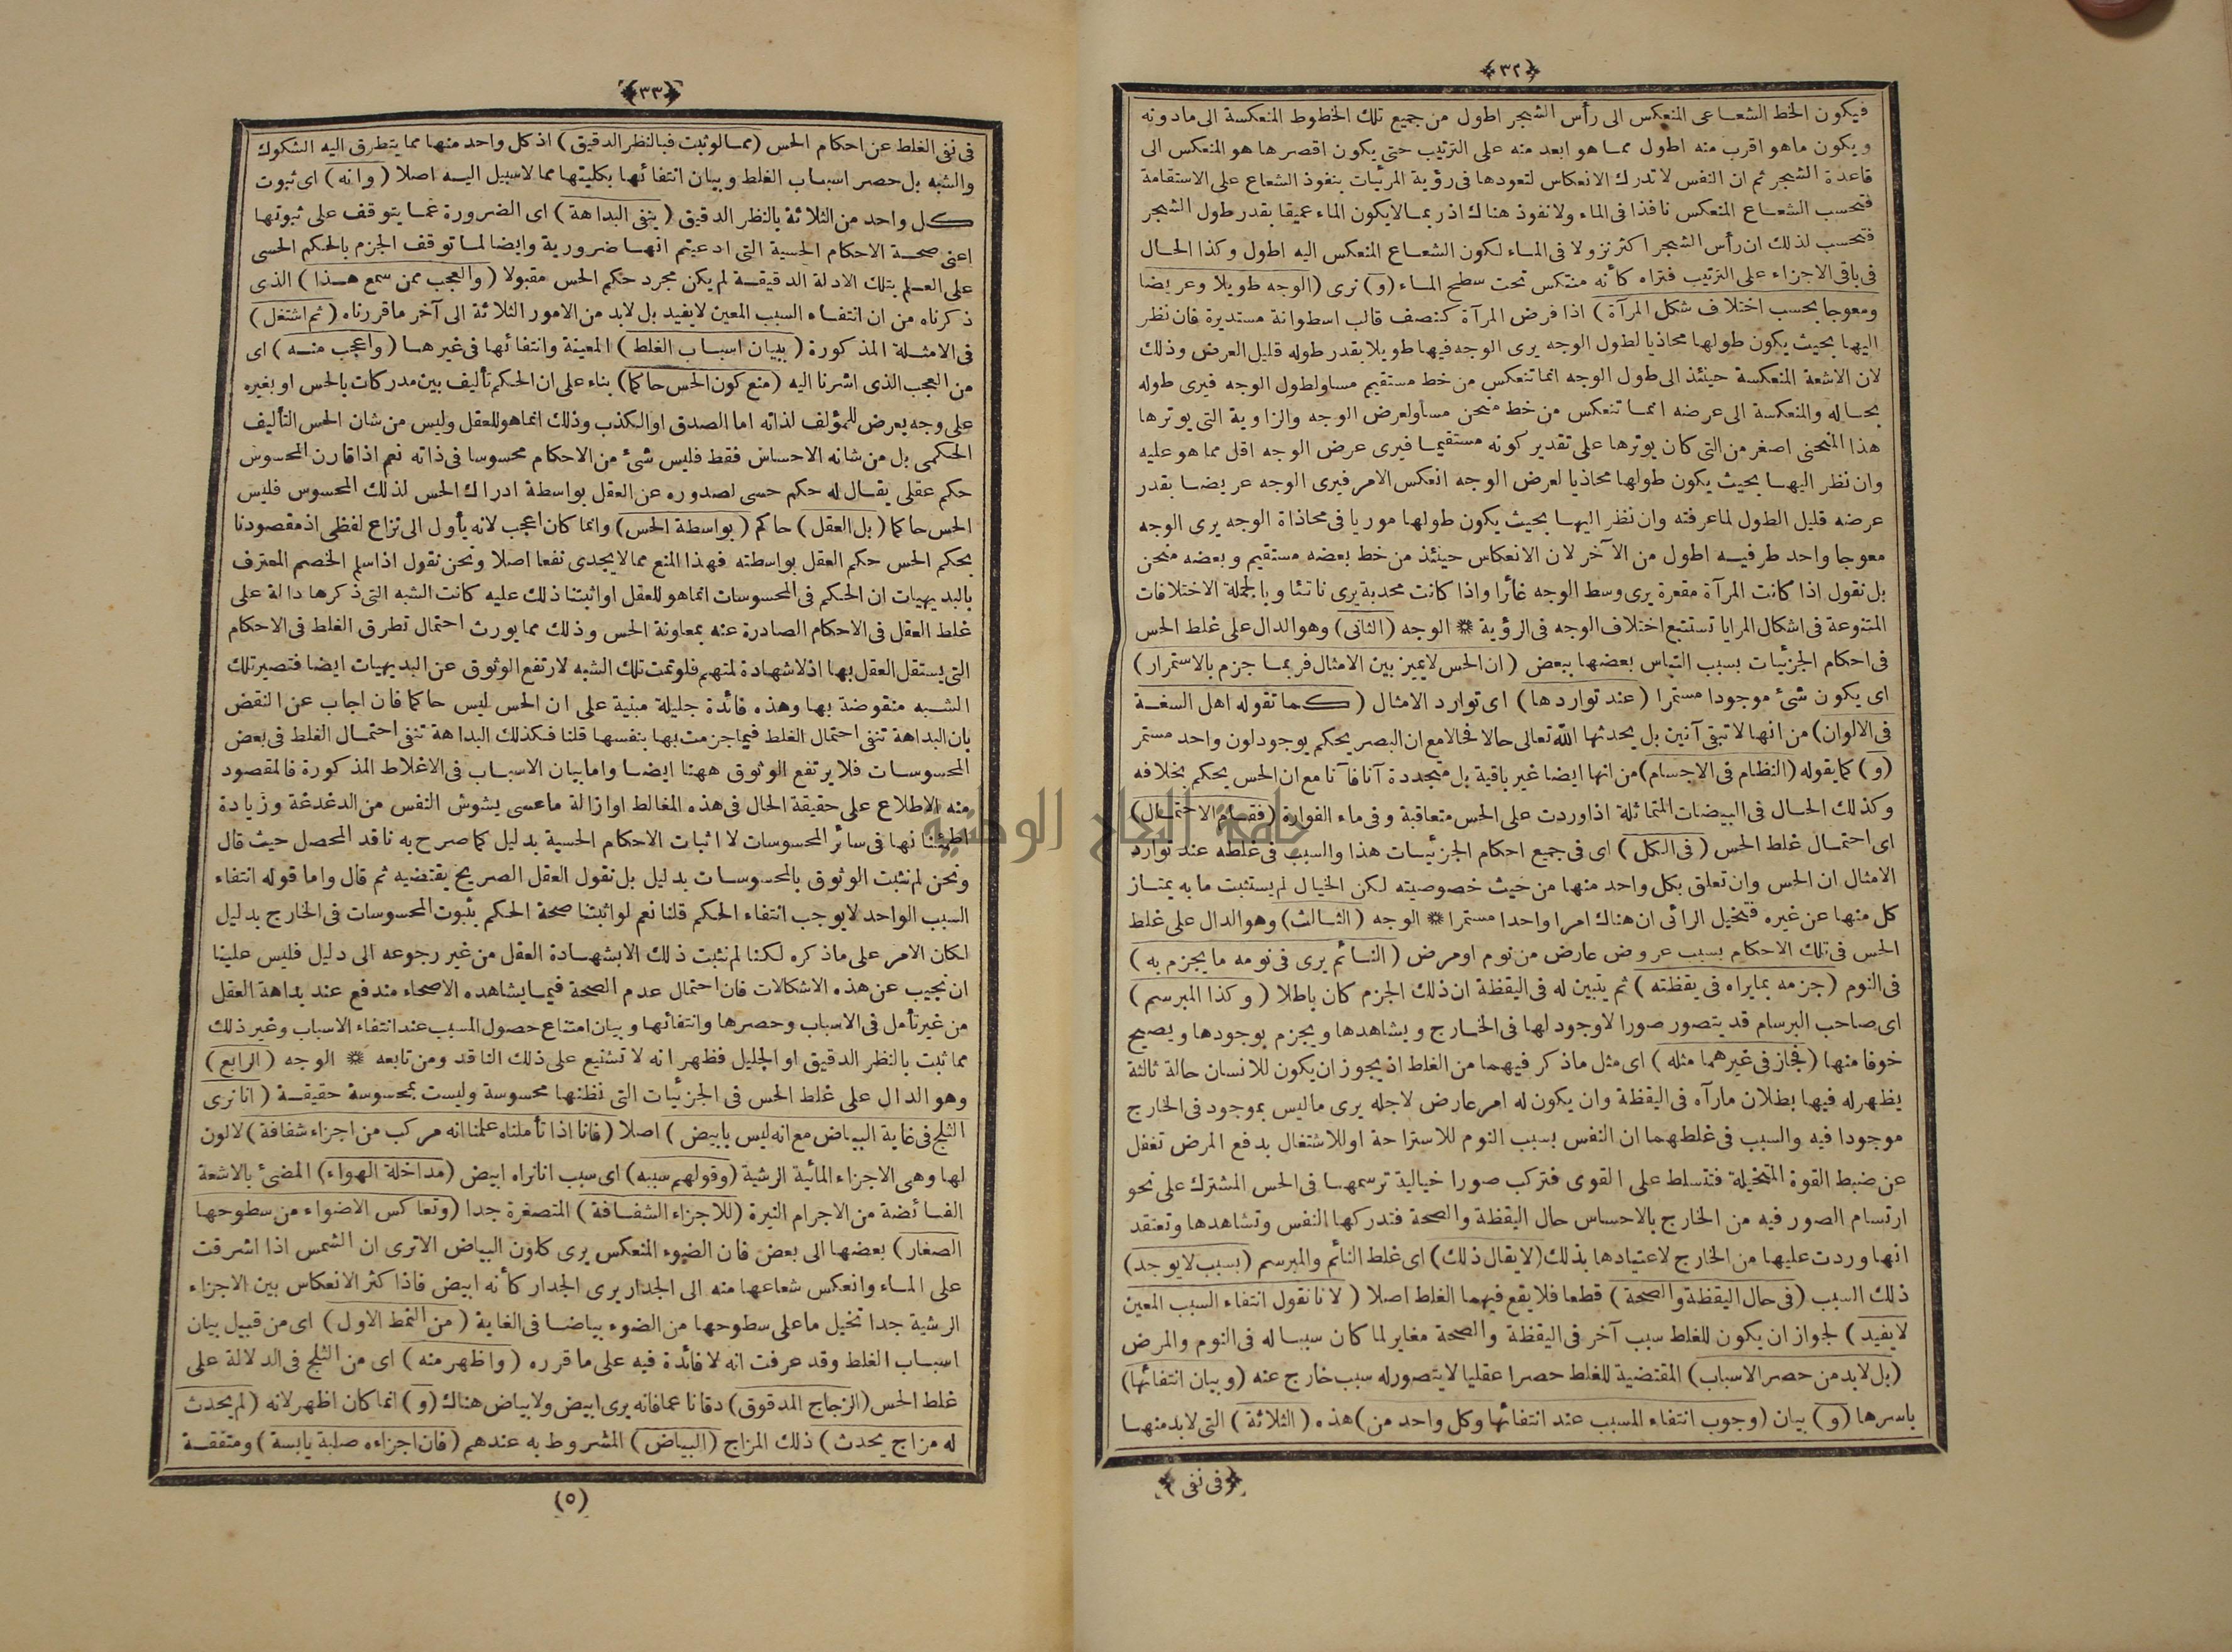 ﴿٣٢﴾
فيكون الخط الشعاعى المنعكس الى رأس الشجر اطول من جميع تلك الخطوط المنعكسة الى مادونه
ويكون ماهو اقرب منه اطول مما هو ابعد منه على الترتيب حتى يكون اقصرها هو المنعكس الى
قاعدة الشجر ثم ان النفس لا تدرك الانعكاس لتعودها فى رؤية المرئيات بنفوذ الشعاع على الاستقامة
فتحسب الشعاع المنعكس نافذا فى الماء ولا نفوذ هناك اذ ربما لايكون الماء عميقا بقدر طول الشجر
فتحسب لذلك ان رأس الشجر اكثر نزولا فى الماء لكون الشعاع المنعكس اليه اطول وكذا الحال
فى باقى الاجزاء على الترتيب فتراه كأنه منتكس تحت سطح الماء (و) نرى (الوجه طويلا وعريضا
ومعوجا بحسب اختلاف شكل المرآة) اذا فرض المرآة كنصف قالب اسطوانة مستديرة فان نظر
اليها بحيث يكون طولها محاذيا لطول الوجه يرى الوجه فيها طويلا بقدر طوله قليل العرض وذلك
لان الاشعة المنعكسة حينئذ الى طول الوجه انما تنعكس من خط مستقيم مساو لطول الوجه فيرى طوله
بحاله والمنعكسة الى عرضه انما تنعكس من خط منحن مساو لعرض الوجه والزاوية التى يوترها
هذا المنحنى اصغر من التى كان يوترها على تقدير كونه مستقيما فيرى عرض الوجه اقل مما هو عليه
وان نظر اليها بحيث يكون طولها محاذيا لعرض الوجه انعكس الامر فيرى الوجه عريضا بقدر
عرضه قليل الطول لما عرفته وان نظر اليها بحيث يكون طولها موربا فى محاذاة الوجه يرى الوجه
معوجا واحد طرفيه اطول من الآخر لان الانعكاس حينئذ من خط بعضه مستقيم وبعضه منحن
بل نقول اذا كانت المرآة مقعرة يرى وسط الوجه غائرا واذا كانت محدبة يرى ناتئا وبالجملة الاختلافات
المتنوعة فى اشكال المرايا تستتبع اختلاف الوجه فى الرؤية ❋ الوجه (الثانى) وهو الدال على غلط الحس
فى احكام الجزئيات بسبب التباس بعضها ببعض (ان الحس لايميز بين الامثال فربما جزم بالاستمرار)
اى يكون شئ موجودا مستمرا (عند تواردها) اى توارد الامثال (كما تقوله اهل السنة
فى الالوان) من انها لا تبقى آنين بل يحدثها الله تعالى حالا فحالا مع ان البصر يحكم بوجود لون واحد مستمر
(و) كما يقوله (النظام فى الاجسام) من انها ايضا غير باقية بل متجددة آنا فآنا مع ان الحس يحكم بخلافه
وكذلك الحال فى البيضات المتماثلة اذا وردت على الحس متعاقبة وفى ماء الفوارة (فقام الاحتمال)
اى احتمال غلط الحس (فى الكل) اى فى جميع احكام الجزئيات هذا والسبب فى غلطه عند توارد
الامثال ان الحس وان تعلق بكل واحد منها من حيث خصوصيته لكن الخيال لم يستثبت ما به يمتاز
كل منها عن غيره فيتخيل الرائى ان هناك امرا واحدا مستمرا ❋ الوجه (الثالث) وهو الدال على غلط
الحس فى تلك الاحكام بسبب عروض عارض من نوم او مرض (النائم يرى فى نومه ما يجزم به)
فى النوم (جزمه بما يراه فى يقظته) ثم يتبين له فى اليقظة ان ذلك الجزم كان باطلا (وكذا المبرسم)
اى صاحب البرسام قد يتصور صورا لاوجود لها فى الخارج ويشاهدها ويجزم بوجودها ويصيح
خوفا منها (فجاز فى غيرهما مثله) اى مثل ماذكر فيهما من الغلط اذ يجوز ان يكون للانسان حالة ثالثة
يظهر له فيها بطلان مارآه فى اليقظة وان يكون له امر عارض لاجله يرى ماليس بموجود فى الخارج
موجودا فيه والسبب فى غلطهما ان النفس بسبب النوم للاستراحة او للاشتغال بدفع المرض تغفل
عن ضبط القوة المتخيلة فتتسلط على القوى فتركب صورا خيالية ترسمها فى الحس المشترك على نحو
ارتسام الصور فيه من الخارج بالاحساس حال اليقظة والصحة فتدركها النفس وتشاهدها وتعتقد
انها وردت عليها من الخارج لاعتيادها بذلك (لايقال ذلك) اى غلط النائم والمبرسم (بسبب لايوجد)
ذلك السبب (فى حال اليقظة والصحة) قطعا فلا يقع فيهما الغلط اصلا (لانا نقول انتفاء السبب المعين
لايفيد) لجواز ان يكون للغلط سبب آخر فى اليقظة والصحة مغاير لما كان سببا له فى النوم والمرض
(بل لابد من حصر الاسباب) المقتضية للغلط حصرا عقليا لايتصور له سبب خارج عنه (وبيان انتفائها)
باسرها (و) بيان (وجوب انتفاء المسبب عند انتفائها وكل واحد من) هذه (الثلاثة) التى لابد منها
﴿فى نفى﴾
﴿٣٣﴾
فى نفى الغلط عن احكام الحس (مما لو ثبت فبالنظر الدقيق) اذ كل واحد منها مما يتطرق اليه الشكوك
والشبه بل حصر اسباب الغلط وبيان انتفائها بكليتها مما لاسبيل اليه اصلا (وانه) اى ثبوت
كل واحد من الثلاثة بالنظر الدقيق (ينفى البداهة) اى الضرورة عما يتوقف على ثبوتها
اعنى صحة الاحكام الحسية التى ادعيتم انها ضرورية وايضا لما توقف الجزم بالحكم الحسى
على العلم بتلك الادلة الدقيقة لم يكن مجرد حكم الحس مقبولا (والعجب ممن سمع هذا) الذى
ذكرناه من ان انتفاء السبب المعين لايفيد بل لابد من الامور الثلاثة الى آخر ماقررناه (ثم اشتغل)
فى الامثلة المذكورة (ببيان اسباب الغلط) المعينة وانتفائها فى غيرها (واعجب منه) اى
من العجب الذى اشرنا اليه (منع كون الحس حاكما) بناء على ان الحكم تأليف بين مدركات بالحس او بغيره
على وجه يعرض للمؤلف لذاته اما الصدق او الكذب وذلك انما هو للعقل وليس من شان الحس التأليف
الحكمى بل من شانه الاحساس فقط فليس شئ من الاحكام محسوسا فى ذاته نعم اذا قارن المحسوس
حكم عقلى يقال له حكم حسى لصدوره عن العقل بواسطة ادراك الحس لذلك المحسوس فليس
الحس حاكما (بل العقل) حاكم (بواسطة الحس) وانما كان اعجب لانه يأول الى نزاع لفظى اذ مقصودنا
بحكم الحس حكم العقل بواسطته فهذا المنع مما لايجدى نفعا اصلا ونحن نقول اذا سلم الخصم المعترف
بالبديهيات ان الحكم فى المحسوسات انما هو للعقل او اثبتنا ذلك عليه كانت الشبه التى ذكرها دالة على
غلط العقل فى الاحكام الصادرة عنه بمعاونة الحس وذلك مما يورث احتمال تطرق الغلط فى الاحكام
التى يستقل العقل بها اذ لاشهادة لمتهم فلو تمت تلك الشبه لارتفع الوثوق عن البديهيات ايضا فتصير تلك
الشبه منقوضة بها وهذه فائدة جليلة مبنية على ان الحس ليس حاكما فان اجاب عن النقض
بان البداهة تنفى احتمال الغلط فيما جزمت بها بنفسها قلنا فكذلك البداهة تنفى احتمال الغلط فى بعض
المحسوسات فلا يرتفع الوثوق ههنا ايضا واما بيان الاسباب فى الاغلاط المذكورة فالمقصود
منه الاطلاع على حقيقة الحال فى هذه المغالط او ازالة ماعسى يشوش النفس من الدغدغة وزيادة
اطمئنانها فى سائر المحسوسات لا اثبات الاحكام الحسية بدليل كما صرح به ناقد المحصل حيث قال
ونحن لم نثبت الوثوق بالمحسوسات بدليل بل نقول العقل الصريح يقتضيه ثم قال واما قوله انتفاء
السبب الواحد لايوجب انتفاء الحكم قلنا نعم لو اثبتنا صحة الحكم بثبوت المحسوسات فى الخارج بدليل
لكان الامر على ماذكره لكنا لم نثبت ذلك الا بشهادة العقل من غير رجوعه الى دليل فليس علينا
ان نجيب عن هذه الاشكالات فان احتمال عدم الصحة فيما يشاهده الاصحاء مندفع عند بداهة العقل
من غير تأمل فى الاسباب وحصرها وانتفائها وبيان امتناع حصول المسبب عند انتفاء الاسباب وغير ذلك
مما ثبت بالنظر الدقيق او الجليل فظهر انه لا تشنيع على ذلك الناقد ومن تابعه ❋ الوجه (الرابع)
وهو الدال على غلط الحس فى الجزئيات التى نظنها محسوسة وليست بمحسوسة حقيقة (انا نرى
الثلج فى غاية البياض مع انه ليس بابيض) اصلا (فانا اذا تأملناه علمنا انه مركب من اجزاء شفافة) لالون
لها وهى الاجزاء المائية الرشية (وقولهم سببه) اى سبب انا نراه ابيض (مداخلة الهواء) المضئ بالاشعة
الفائضة من الاجرام النيرة (للاجزاء الشفافة) المتصغرة جدا (وتعاكس الاضواء من سطوحها
الصغار) بعضها الى بعض فان الضوء المنعكس يرى كلون البياض الاترى ان الشمس اذا اشرقت
على الماء وانعكس شعاعها منه الى الجدار يرى الجدار كأنه ابيض فاذا كثر الانعكاس بين الاجزاء
الرشية جدا تخيل ماعلى سطوحها من الضوء بياضا فى الغاية (من النمط الاول) اى من قبيل بيان
اسباب الغلط وقد عرفت انه لا فائدة فيه على ما قرره (واظهر منه) اى من الثلج فى الدلالة على
غلط الحس (الزجاج المدقوق) دقا ناعما فانه يرى ابيض ولا بياض هناك (و) انما كان اظهر لانه (لم يحدث
له مزاج يحدث) ذلك المزاج (البياض) المشروط به عندهم (فان اجزاءه صلبة يابسة) ومتفقة
(٥)
جامعة النجاح الوطنية